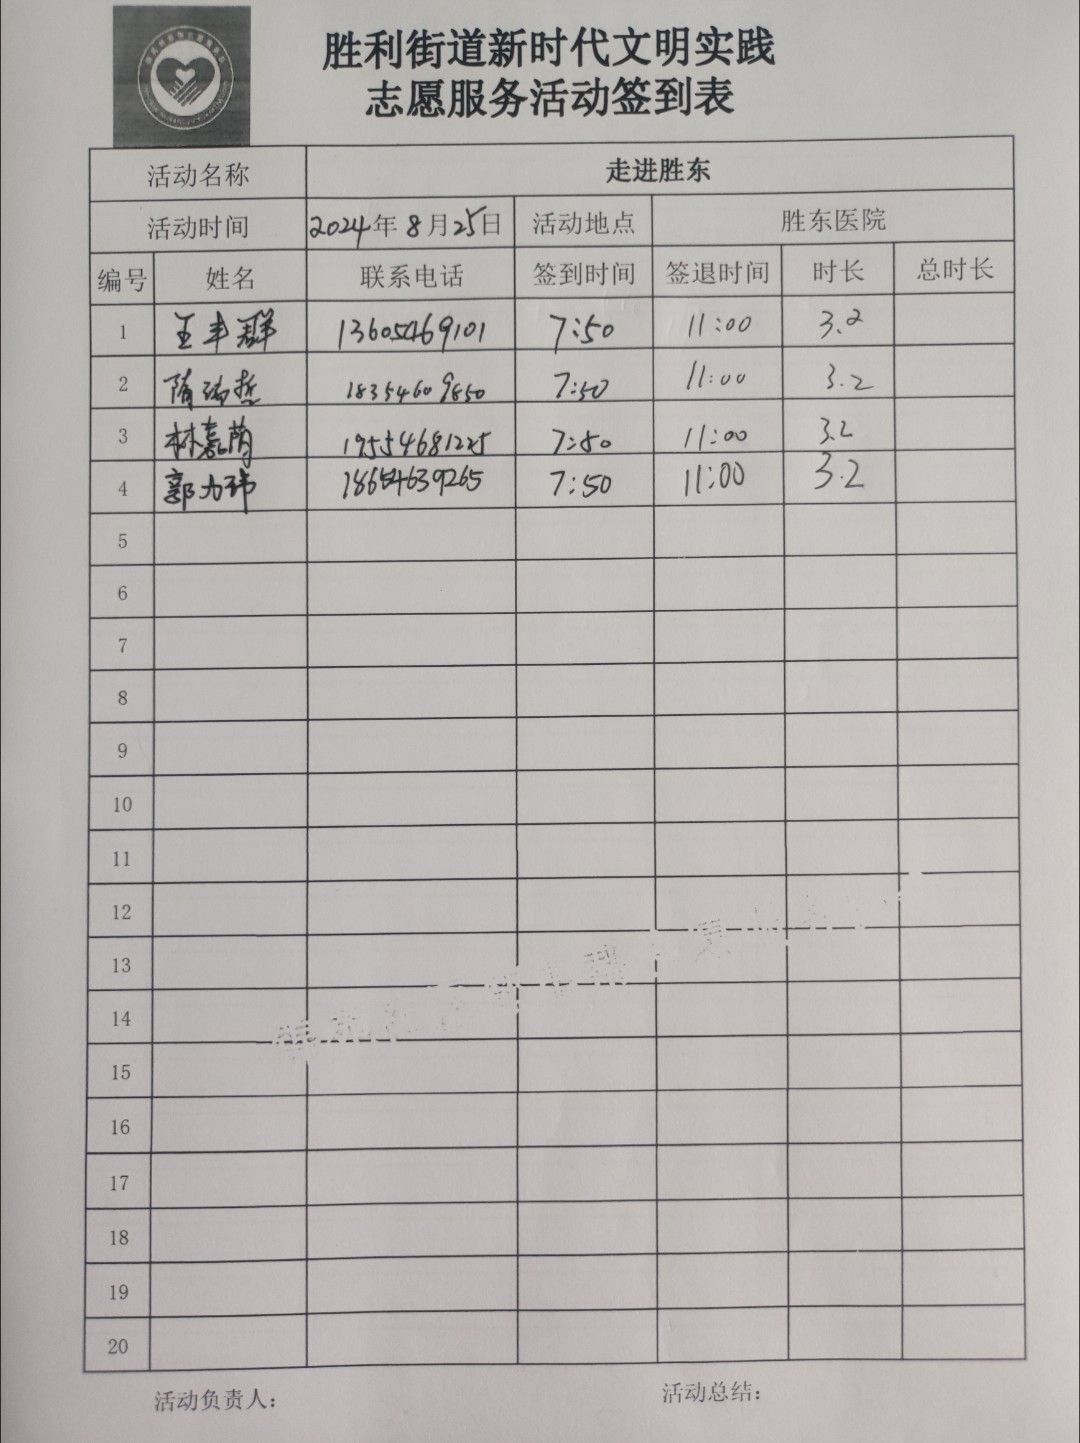 胜利街道新时代文明实践
志愿服务活动签到表
活动名称 走进胜东
活动时间 2024年8月25日 活动地点 胜东医院
编号 姓名 联系电话 签到时间 签退时间 时长 总时长
1 王丰群 13605469101 7:50 11:00 3.2
2 隋瑞哲 18354609850 7:50 11:00 3.2
3 林嘉荫 19554681225 7:50 11:00 3.2
4 郭力玮 18654639265 7:50 11:00 3.2
5
6
7
8
9
10
11
12
13
14
15
16
17
18
19
20
活动负责人: 活动总结: